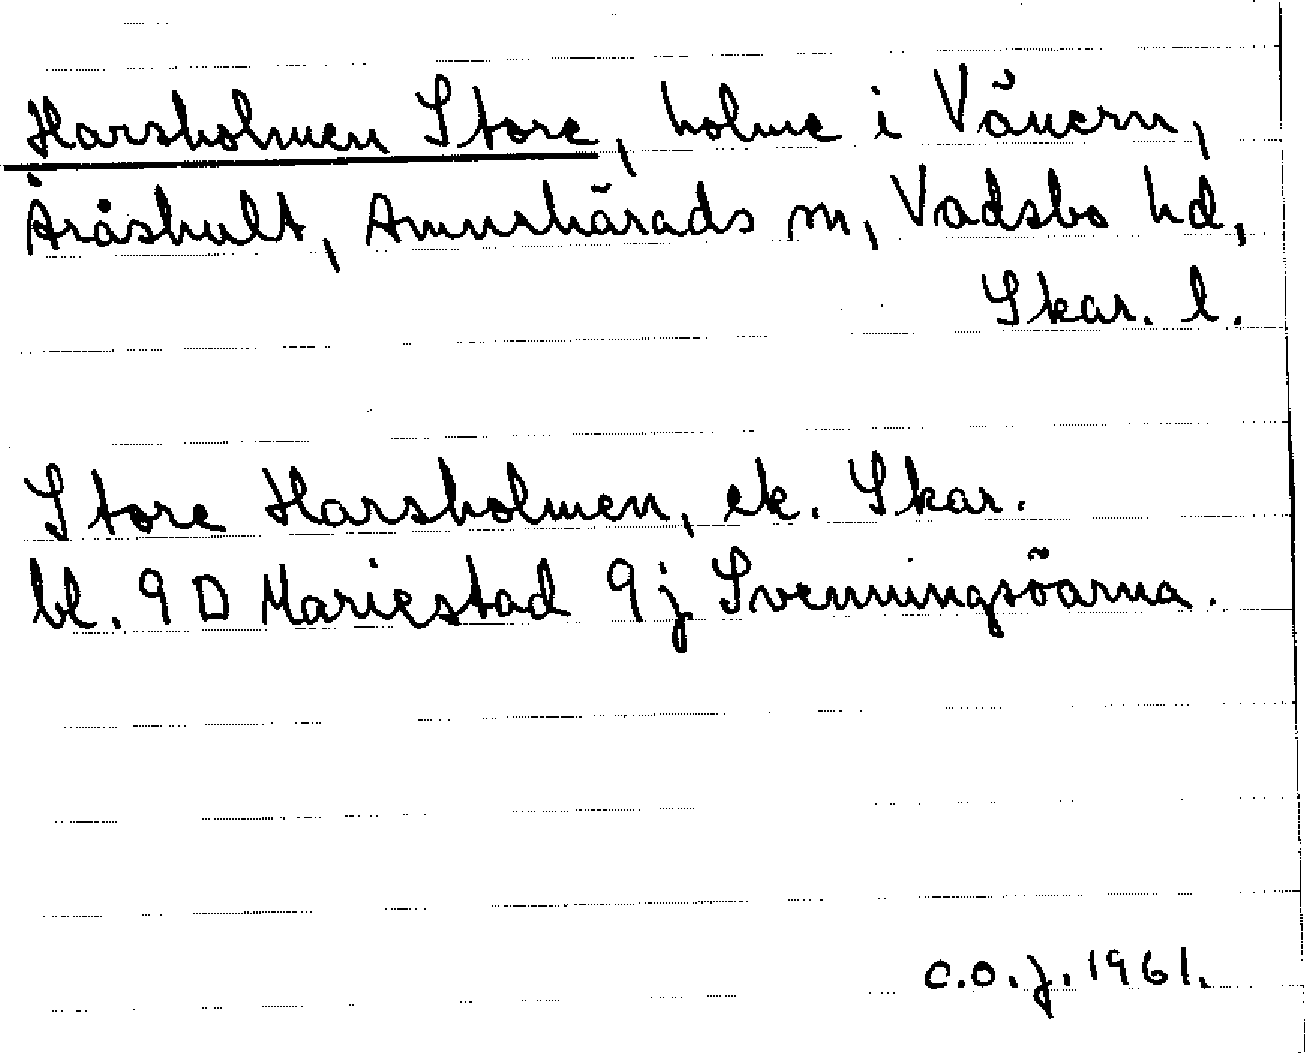 Harsholmen Store, holme i Vänern,
Åråshult, Amnehärads sn, Vadsbo hd,
Skar. l.
Store Harsholmen, ek. Skar.
bl. 9 D Mariestad 9 j Svenningsöarna.
C.O.J. 1961.